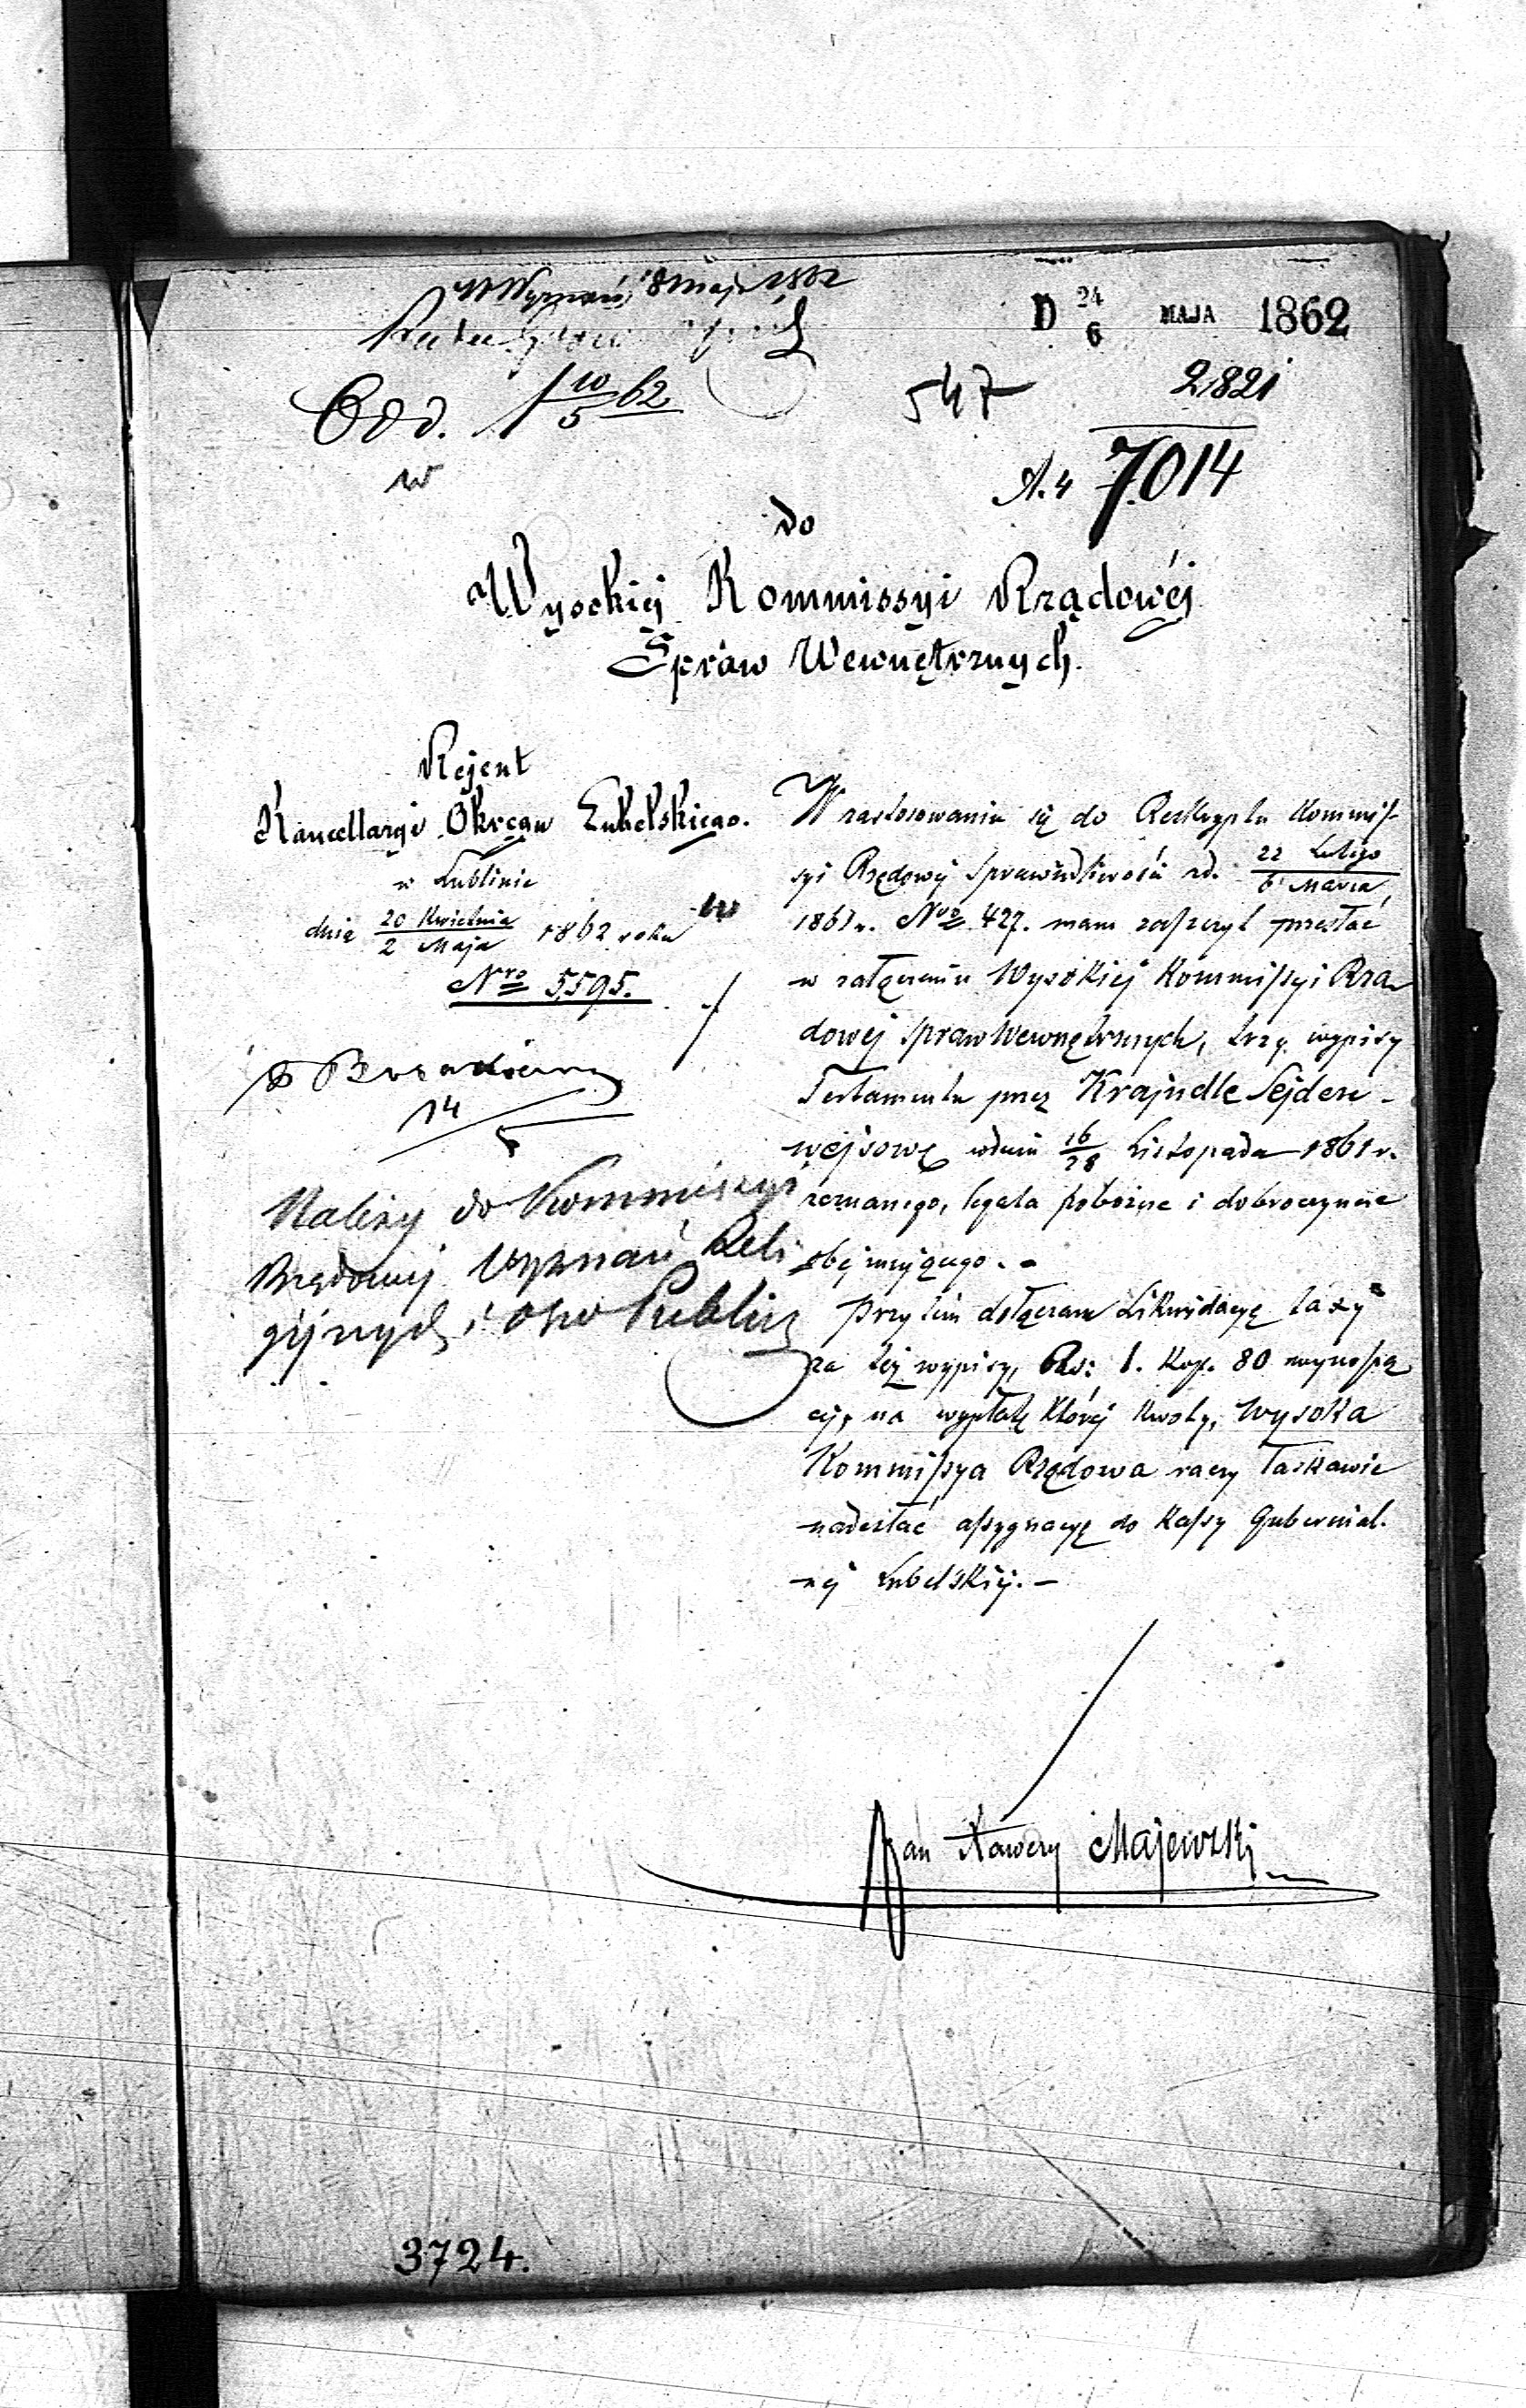 W Wyznań 8 Maja 1862
D 24/6 MAJA 1862
Odd. 1 10/5 62
547
2,821
w
A.4 7014
do
Wysokiéj Kommissyi Rządowéj
Spraw Wewnętrznych.
Rejent
Kancellaryi Okręgu Lubelskiego.
w Lublinie
dnia 20 Kwietnia/2 Maja 1862 roku
Nro 5,595.
14
Należy do Kommissyi
Rządowej Wyznań Reli
gijnych i Ośw Publicz
W zastosowaniu się do Reskryptu Kommis-
syi Rządowej Sprawiedliwości zd. 22 Lutego/6 Marca
1861 r. Nro 427. mam zaszczyt przesłać
w załączeniu Wysokiej Kommissyi Rzą
dowéj Spraw Wewnętrznych, trzy wypisy
Testamentu przez Krajndlę Sejden-
wejsową wdniu 16/28 Listopada 1861 r.
zeznanego, legata pobożne i dobroczynne
obejmującego. -
Przytém dołączam Likwidacyę taxy
za też wypisy, Rs: 1. Kop. 80 wynoszą
cej, na wypłatę któréj kwoty, Wysoka
Kommissya Rządowa raczy łaskawie
nadesłać assygnacyę do Kassy Gubernial-
nej Lubelskiéj. -
Jan Xawery Majewski
3724.